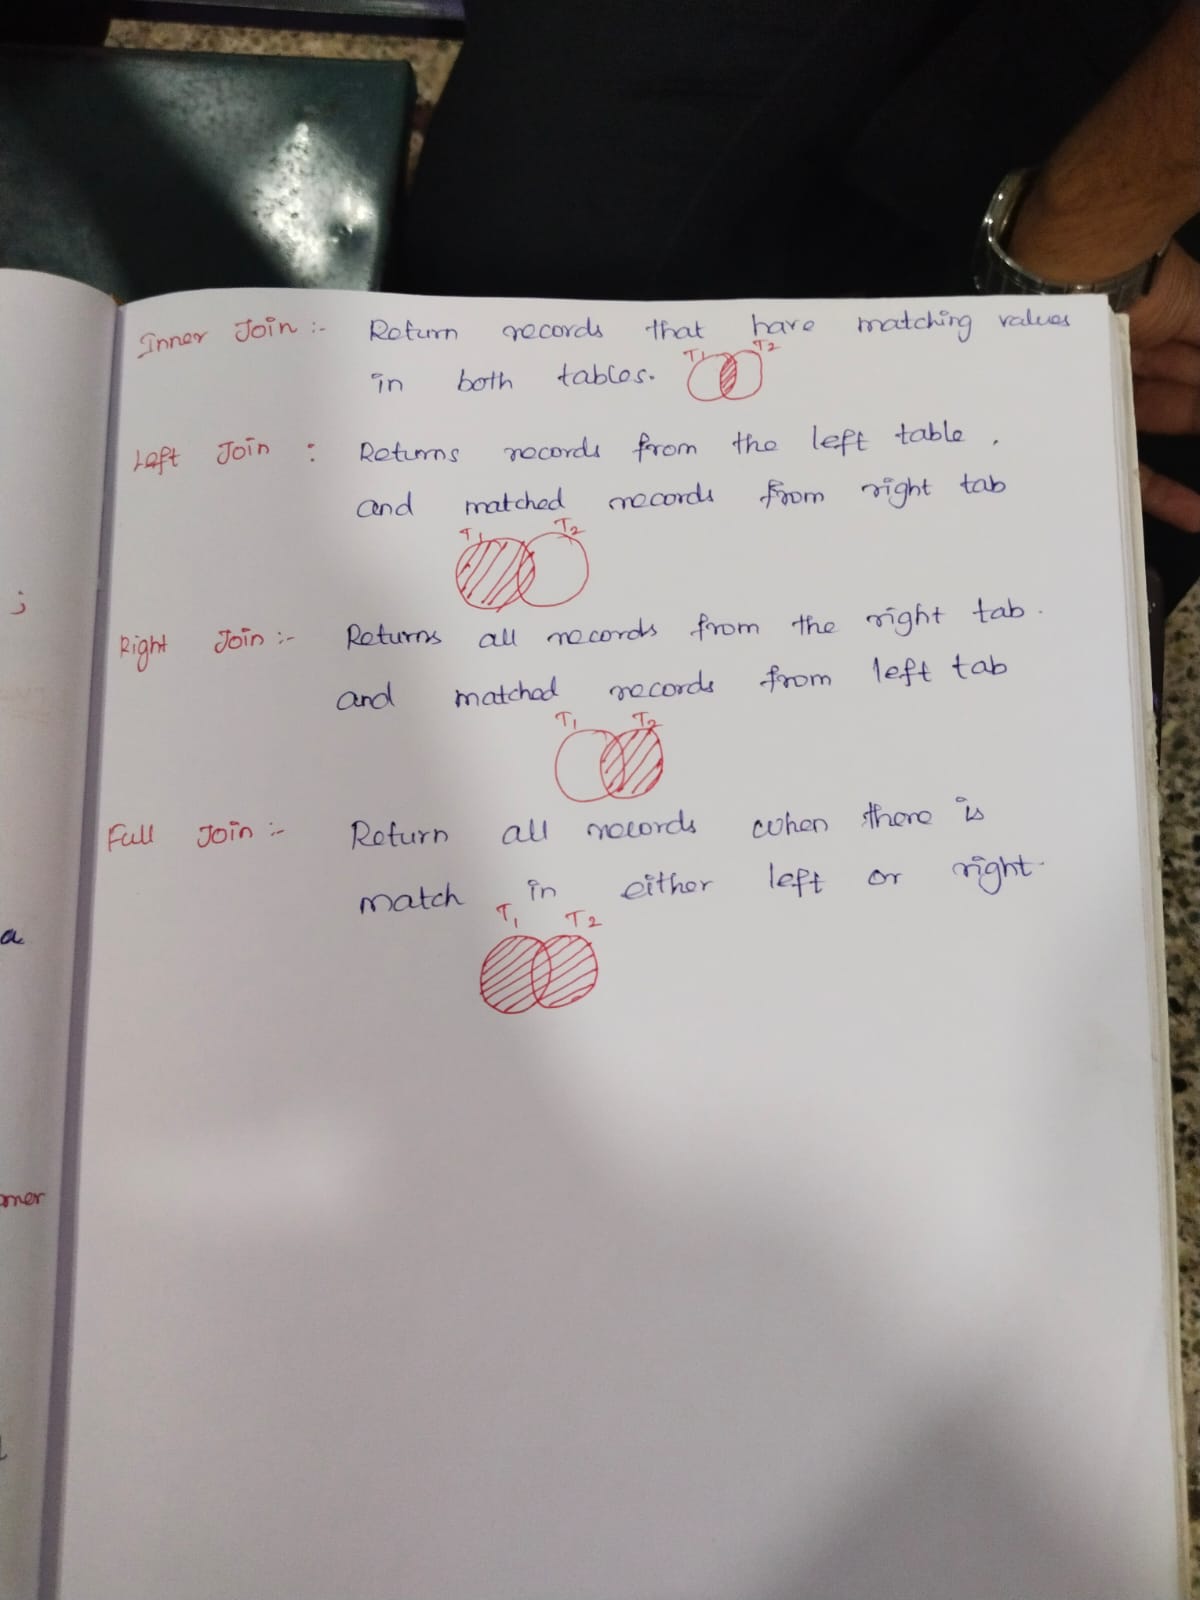 ;
a
omer
Inner Join :- Return records that have matching values
in both tables.
T1 T2
Left Join : Returns records from the left table,
and matched records from right tab
T1 T2
Right Join :- Returns all records from the right tab.
and matched records from left tab
T1 T2
Full Join :- Return all records when there is
match in either left or right.
T1 T2